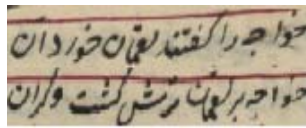 خواجه را گفتند لقمان خورد آن
خواجه بر لقمان ترش گشت و گران